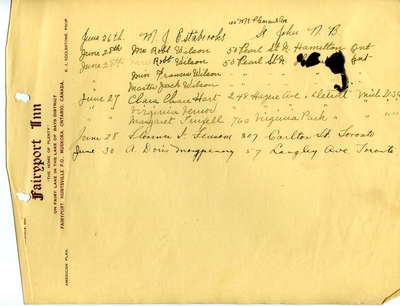 Fairyport Inn
"THE HOME OF PLENTY"
"ON FAIRY LAKE IN THE LAKE OF BAYS DISTRICT"
FAIRYPORT, HUNTSVILLE P.O., MUSKOKA, ONTARIO, CANADA.
AMERICAN PLAN.
June 26th. M. J. Estabrooks St John N B
June 28th Mr Robt Wilson 50 Pearl St N. Hamilton Ont-
June 28th Robt Wilson 50 Pearl St N Ont-
" Miss Frances Wilson " "
" Master Jack Wilson " "
June 27 Clara Hart 248 Ave. Detroit Mich
" Virginia " "
" Margaret 760 Virginia Park " "
June 28 307 Carlton St. Toronto
June 30 A. Doris 57 Langley Ave Toronto